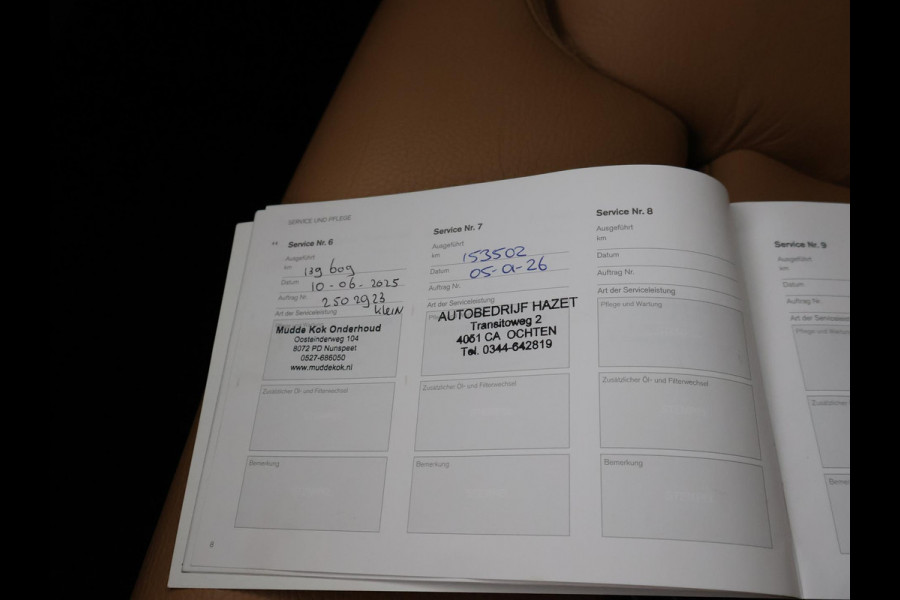 SERVICE UND PFLEGE
Service Nr. 6
Ausgeführt
km 139609
Datum 10-06-2025
Auftrag Nr. 2502923
Art der Serviceleistung Klein
Mudde Kok Onderhoud
Oosteinderweg 104
8072 PD Nunspeet
0527-686050
www.muddekok.nl
Zusätzlicher Öl- und Filterwechsel
Bemerkung
8
Service Nr. 7
Ausgeführt
km 153502
Datum 05-01-26
Auftrag Nr.
Art der Serviceleistung
AUTOBEDRIJF HAZET
Transitoweg 2
4051 CA OCHTEN
Tel. 0344-642819
Zusätzlicher Öl- und Filterwechsel
Bemerkung
Service Nr. 8
Ausgeführt
km
Datum
Auftrag Nr.
Art der Serviceleistung
Pflege und Wartung
Zusätzlicher Öl- und Filterwechsel
Bemerkung
Service Nr. 9
Ausgeführt
km
Datum
Auftrag Nr.
Art der Serviceleistung
Pflege und Wartung
Zusätzlicher